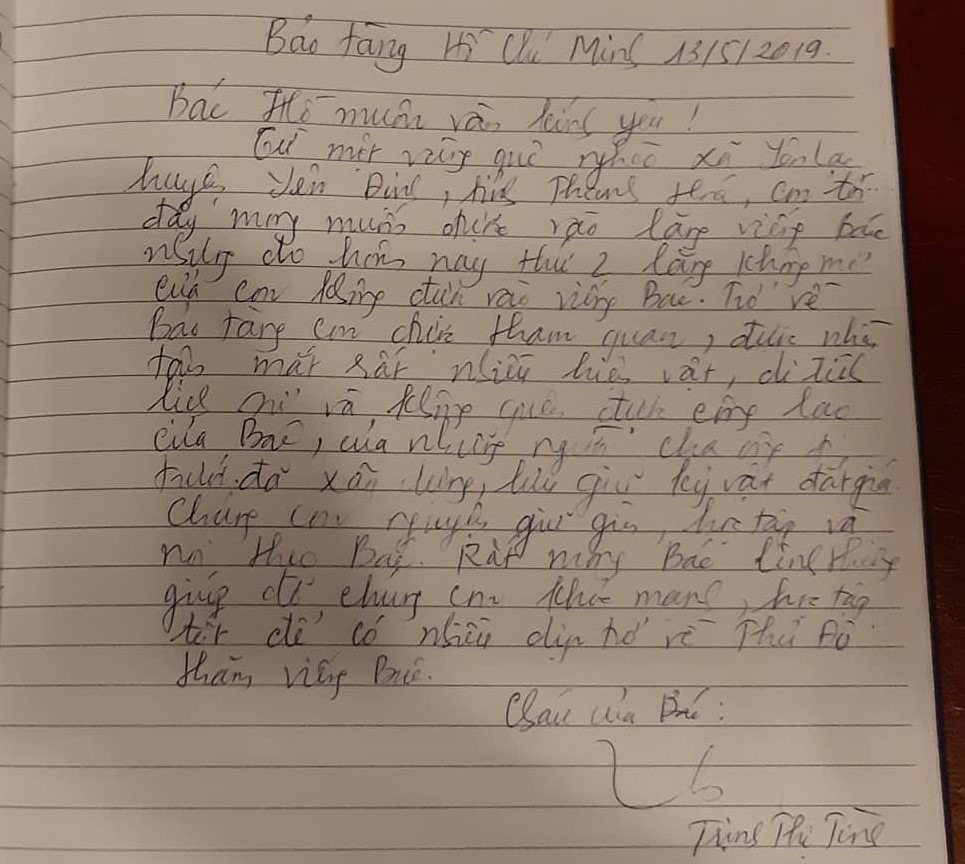 Bảo tàng Hồ Chí Minh 13/5/2019.
Bác Hồ muôn vàn kính yêu!
Từ một vùng quê nghèo xã Yên Lạc
huyện Yên Định, tỉnh Thanh Hoá, con tới
đây mong muốn được vào lăng viếng Bác
nhưng do hôm nay thứ 2 lăng không mở
cửa con không được vào viếng Bác. Trở về
Bảo tàng con được tham quan, được nhìn
tận mắt rất nhiều hiện vật, di tích
lịch sử và không quên được công lao
của Bác, của những người cha ông đi
trước đã xây dựng, lưu giữ kỷ vật đắt giá.
Chúng con nguyện giữ gìn, học tập và
noi theo Bác. Rất mong Bác linh thiêng
giúp đỡ chúng con khoẻ mạnh, học tập
tốt để có nhiều dịp trở về Thủ Đô
thăm viếng Bác.
Cháu của Bác:
Trịnh Thị Tình